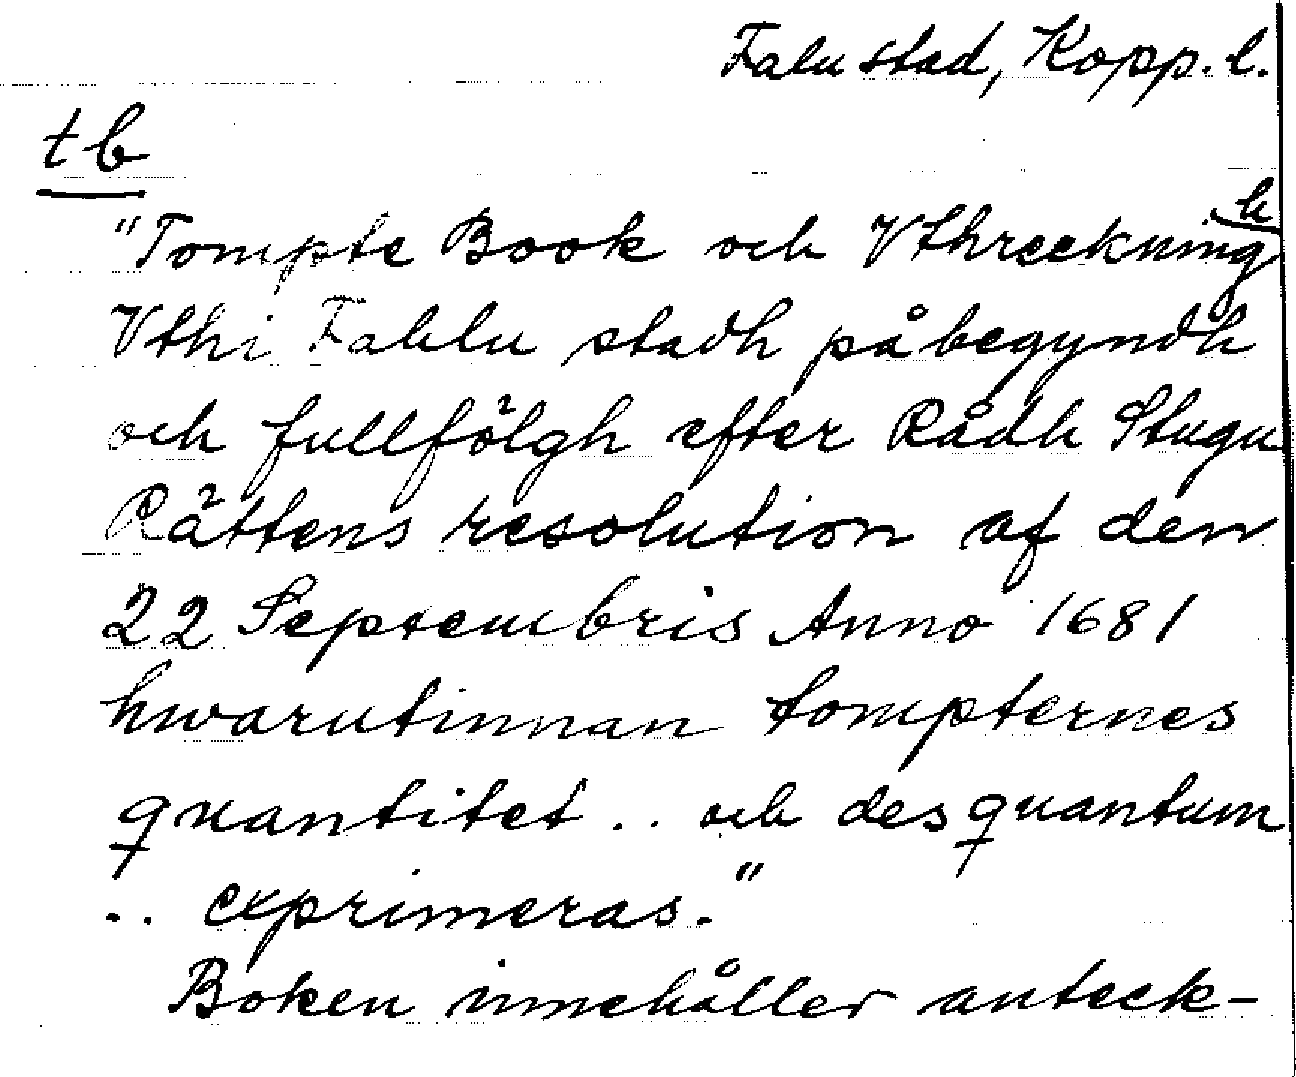 Falu stad, Kopp. l.
tb
"Tompte Book och Vthreekningh
Vthi Fahlu stadh påbegyndh
och fullfölgh efter Rådh Stugu
Rättens resolution af den
22 Septembris Anno 1681
hwarutinnan tompternes
quantitet .. och des quantum
.. exprimeras."
Boken innehåller anteck-